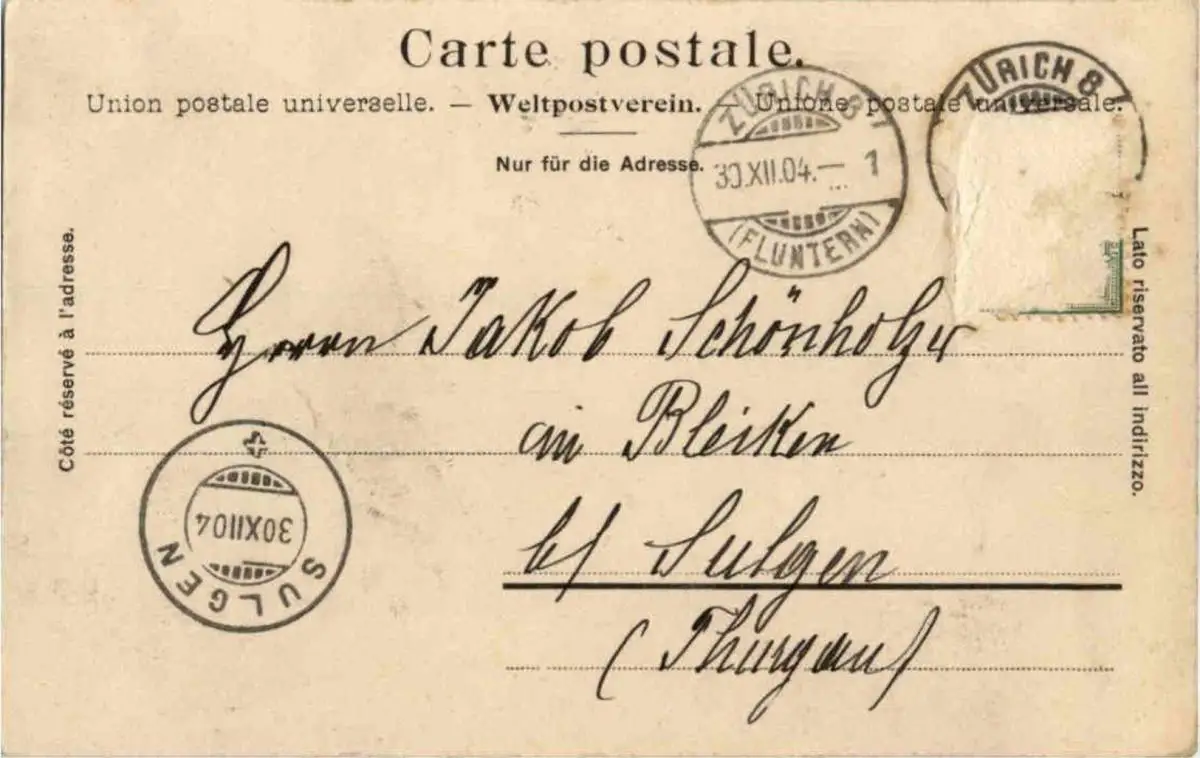 Carte postale.
Union postale universelle. — Weltpostverein. — Unione postale universale.
Nur für die Adresse.
ZÜRICH 8
30.XII.04.— 1
(FLUNTERN)
ZÜRICH 8
Côté réservé à l'adresse.
Lato riservato all indirizzo.
Herrn Jakob Schönholzer
in Bleiken
b/ Sulgen
(Thurgau)
SULGEN
30XII04